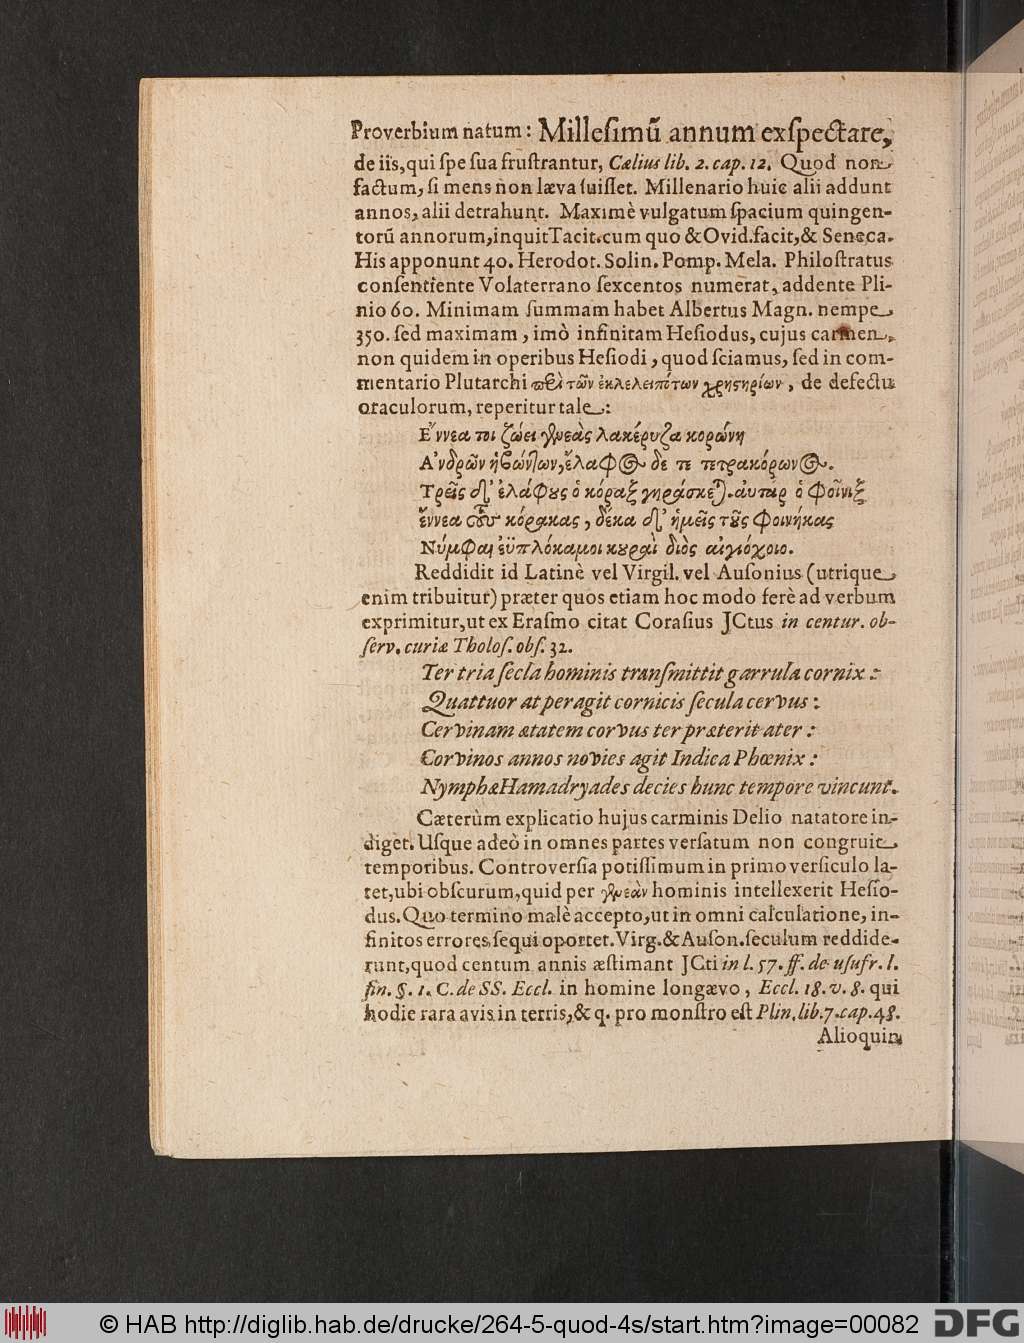 Proverbium natum: Millesimũ annum exſpectare,
de iis, qui ſpe ſua fruſtrantur, Cælius lib. 2. cap. 12. Quod non
factum, ſi mens non læva fuiſſet. Millenario huic alii addunt
annos, alii detrahunt. Maximè vulgatum ſpacium quingen-
torũ annorum, inquit Tacit. cum quo & Ovid. facit, & Seneca.
His apponunt 40. Herodot. Solin. Pomp. Mela. Philoſtratus
conſentiente Volaterrano ſexcentos numerat, addente Pli-
nio 60. Minimam ſummam habet Albertus Magn. nempe
350. ſed maximam, imò infinitam Heſiodus, cujus carmen,
non quidem in operibus Heſiodi, quod ſciamus, ſed in com-
mentario Plutarchi περὶ τῶν ἐκλελειπότων χρηςηρίων, de defectu
oraculorum, reperitur tale:
Ἐννεα τοι ζώει γενεὰς λακέρυζα κορώνη
Ἀνδρῶν ἡβώντων, ἔλαφος δε τε τετρακόρωνος.
Τρεῖς δ' ἐλάφους ὁ κόραξ γηράσκεται. αὐτὰρ ὁ φοῖνιξ
ἔννεα τοὺς κόρακας, δέκα δ' ἡμεῖς τοὺς φοινήκας
Νύμφαι ἐϋπλόκαμοι κουραὶ διὸς αἰγιόχοιο.
Reddidit id Latinè vel Virgil. vel Auſonius (utrique
enim tribuitur) præter quos etiam hoc modo ferè ad verbum
exprimitur, ut ex Eraſmo citat Coraſius JCtus in centur. ob-
ſerv. curiæ Tholoſ. obſ. 32.
Ter tria ſecla hominis tranſmittit garrula cornix:
Quattuor at peragit cornicis ſecula cervus:
Cervinam ætatem corvus ter præterit ater:
Corvinos annos novies agit Indica Phœnix:
Nymphæ Hamadryades decies hunc tempore vincunt.
Cæterùm explicatio hujus carminis Delio natatore in-
diget. Uſque adeò in omnes partes verſatum non congruit
temporibus. Controverſia potiſſimum in primo verſiculo la-
tet, ubi obſcurum, quid per γενεὰν hominis intellexerit Heſio-
dus. Quo termino malè accepto, ut in omni calculatione, in-
finitos errores ſequi oportet. Virg. & Auſon. ſeculum reddide-
runt, quod centum annis æſtimant JCti in l. 57. ff. de uſufr. l.
fin. §. 1. C. de SS. Eccl. in homine longævo, Eccl. 18. v. 8. qui
hodie rara avis in terris, & q. pro monſtro eſt Plin. lib. 7. cap. 48.
Alioquin
© HAB http://diglib.hab.de/drucke/264-5-quod-4s/start.htm?image=00082
DFG